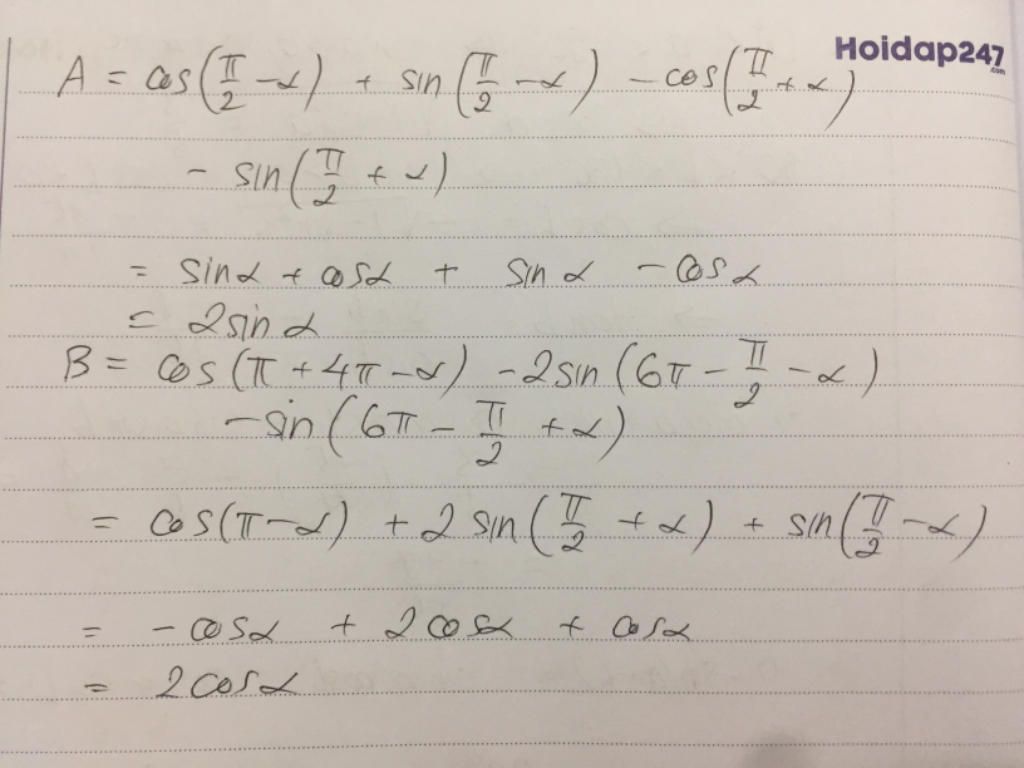 Hoidap247
.com
A = cos(π/2 - α) + sin(π/2 - α) - cos(π/2 + α)
- sin(π/2 + α)
= sinα + cosα + sinα - cosα
= 2sinα
B = cos(π + 4π - α) - 2sin(6π - π/2 - α)
- sin(6π - π/2 + α)
= cos(π - α) + 2sin(π/2 + α) + sin(π/2 - α)
= - cosα + 2cosα + cosα
= 2cosα